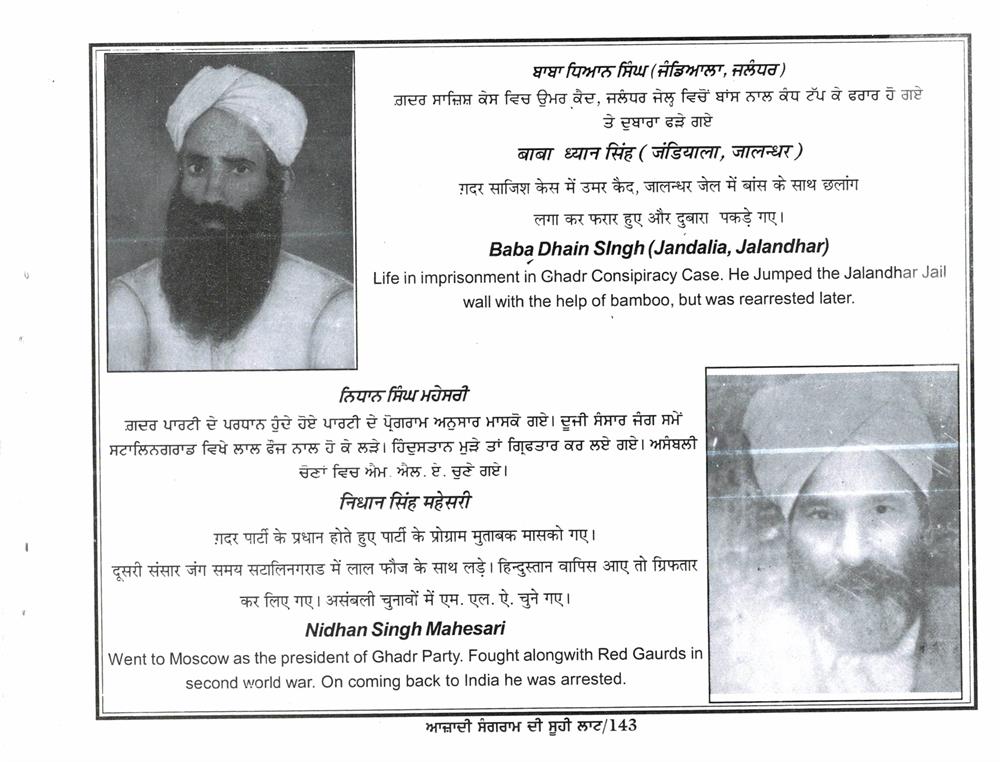 ਬਾਬਾ ਧਿਆਨ ਸਿੰਘ (ਜੰਡਿਆਲਾ, ਜਲੰਧਰ)
ਗ਼ਦਰ ਸਾਜ਼ਿਸ਼ ਕੇਸ ਵਿਚ ਉਮਰ ਕੈਦ, ਜਲੰਧਰ ਜੇਲ੍ਹ ਵਿਚੋਂ ਬਾਂਸ ਨਾਲ ਕੰਧ ਟੱਪ ਕੇ ਫਰਾਰ ਹੋ ਗਏ
ਤੇ ਦੁਬਾਰਾ ਫੜੇ ਗਏ
बाबा ध्यान सिंह ( जंडियाला, जालन्धर )
ग़दर साजिश केस में उमर कैद, जालन्धर जेल में बांस के साथ छलांग
लगा कर फरार हुए और दुबारा पकड़े गए।
Baba Dhain SIngh (Jandalia, Jalandhar)
Life in imprisonment in Ghadr Consipiracy Case. He Jumped the Jalandhar Jail
wall with the help of bamboo, but was rearrested later.
ਨਿਧਾਨ ਸਿੰਘ ਮਹੇਸਰੀ
ਗ਼ਦਰ ਪਾਰਟੀ ਦੇ ਪਰਧਾਨ ਹੁੰਦੇ ਹੋਏ ਪਾਰਟੀ ਦੇ ਪ੍ਰੋਗਰਾਮ ਅਨੁਸਾਰ ਮਾਸਕੋ ਗਏ। ਦੂਜੀ ਸੰਸਾਰ ਜੰਗ ਸਮੇਂ
ਸਟਾਲਿਨਗਰਾਡ ਵਿਖੇ ਲਾਲ ਫੌਜ ਨਾਲ ਹੋ ਕੇ ਲੜੇ। ਹਿੰਦੁਸਤਾਨ ਮੁੜੇ ਤਾਂ ਗ੍ਰਿਫਤਾਰ ਕਰ ਲਏ ਗਏ। ਅਸੰਬਲੀ
ਚੋਣਾਂ ਵਿਚ ਐਮ. ਐਲ. ਏ. ਚੁਣੇ ਗਏ।
निधान सिंह महेसरी
ग़दर पार्टी के प्रधान होते हुए पार्टी के प्रोग्राम मुताबक मासको गए।
दूसरी संसार जंग समय सटालिनगराड में लाल फौज के साथ लड़े। हिन्दुस्तान वापिस आए तो ग्रिफतार
कर लिए गए। असंबली चुनावों में एम. एल. ऐ. चुने गए।
Nidhan Singh Mahesari
Went to Moscow as the president of Ghadr Party. Fought alongwith Red Gaurds in
second world war. On coming back to India he was arrested.
ਆਜ਼ਾਦੀ ਸੰਗਰਾਮ ਦੀ ਸੂਹੀ ਲਾਟ/143